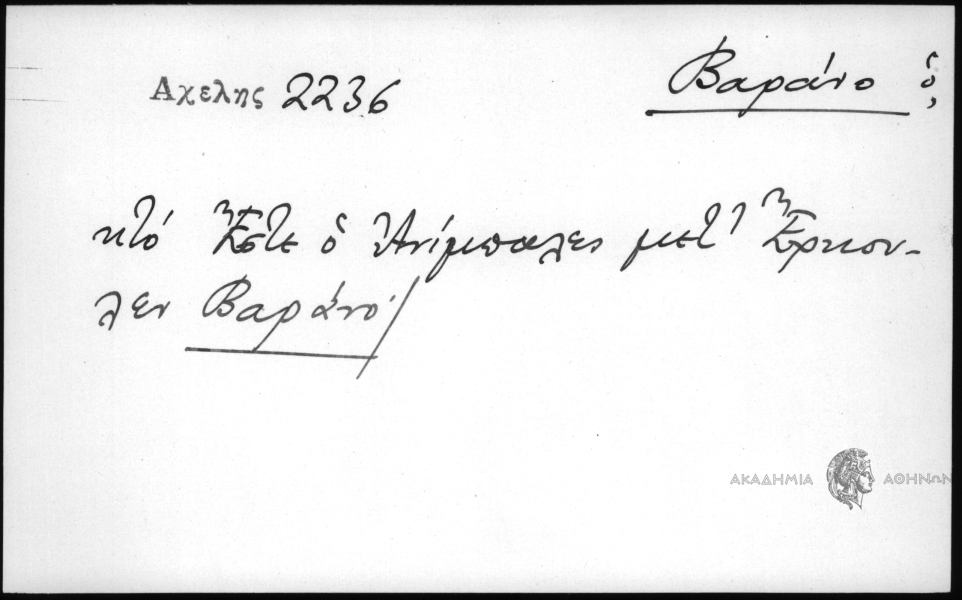 Αχελης 2236
Βαράνο ὁ,
κτό Ἔστε ὁ Ἀνίμπαλες μετ' Ἔρκου-
λεν Βαράνο /
ΑΚΑΔΗΜΙΑ ΑΘΗΝΩΝ